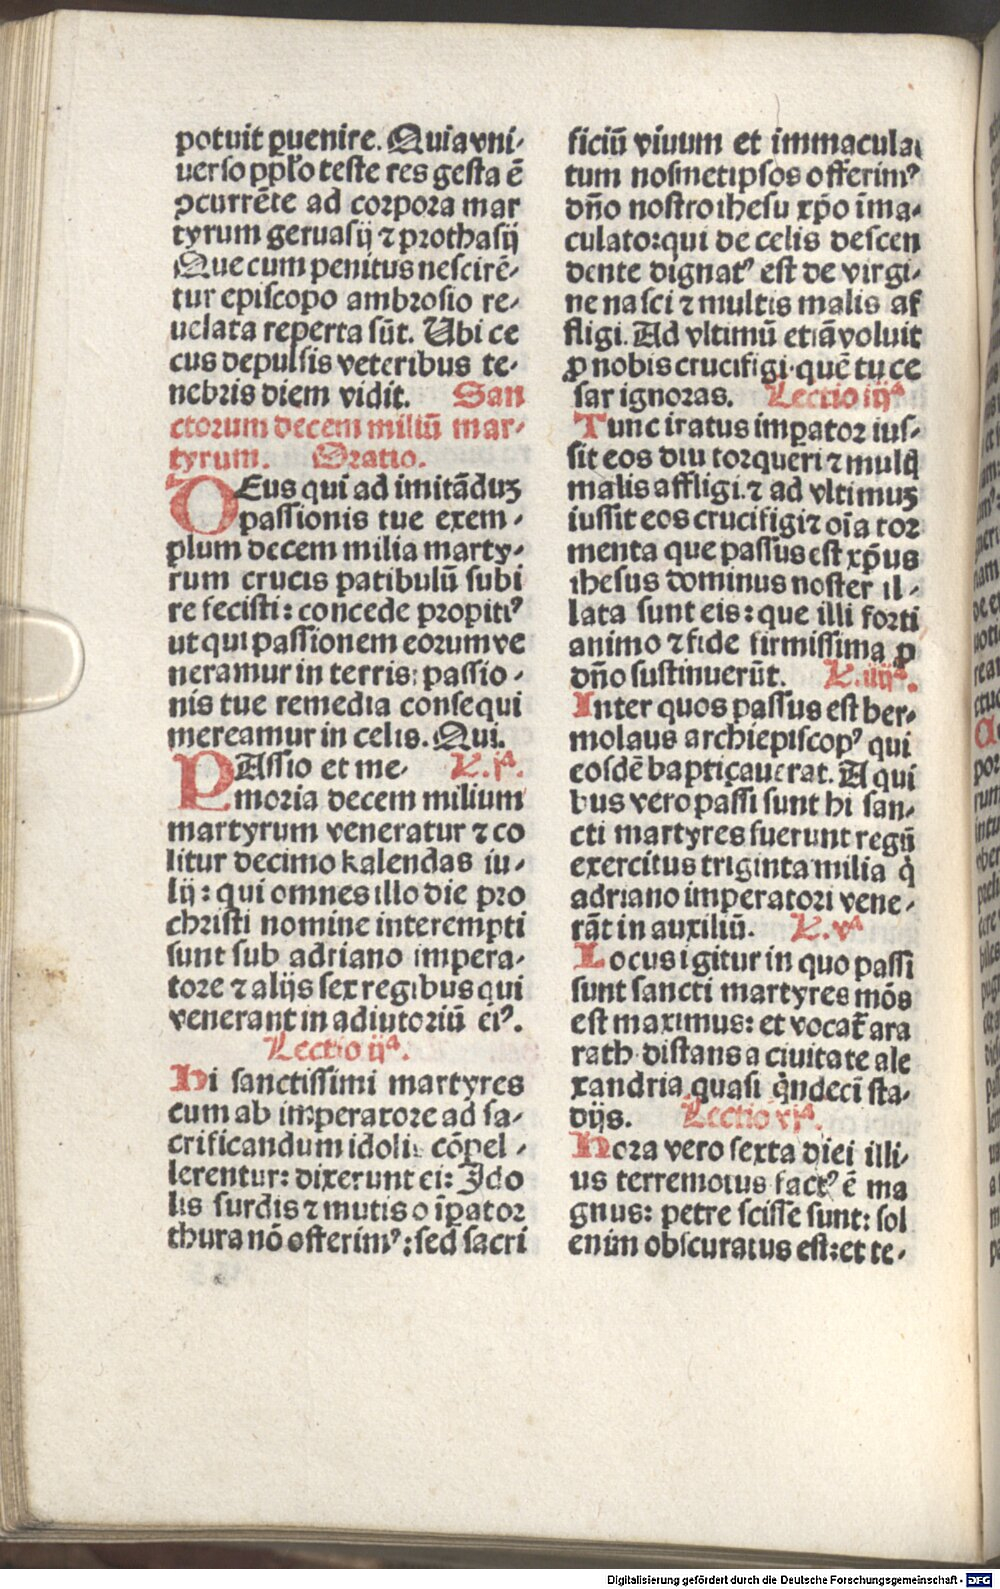 potuit ꝑuenire. Quia vni-
uerso pp̄lo teste res gesta ē
ↄcurrēte ad corpora mar
tyrum geruasij ⁊ prothasij
Que cum penitus nescirē-
tur episcopo ambrosio re-
uelata reperta sūt. Ubi ce
cus depulsis veteribus te-
nebris diem vidit. San
ctorum decem miliū mar-
tyrum. Oratio.
DEus qui ad imitāduꝫ
passionis tue exem-
plum decem milia marty-
rum crucis patibulū subi
re fecisti: concede propitiꝰ
ut qui passionem eorum ve
neramur in terris: passio-
nis tue remedia consequi
mereamur in celis. Qui.
PAssio et me- L. jᵃ.
moria decem milium
martyrum veneratur ⁊ co
litur decimo kalendas iu-
lij: qui omnes illo die pro
christi nomine interempti
sunt sub adriano impera-
tore ⁊ alijs sex regibus qui
venerant in adiutoriū eiꝰ.
Lectio ijᵃ.
Hi sanctissimi martyres
cum ab imperatore ad sa-
crificandum idolis cōpel-
lerentur: dixerunt ei: Ido
lis surdis ⁊ mutis o īꝑator
thura nō offerimꝰ: sed sacri
ficiū viuum et immacula
tum nosmetipsos offerimꝰ
dn̄o nostro ihesu xp̄o īma-
culato: qui de celis descen
dente dignatꝰ est de virgi-
ne nasci ⁊ multis malis af
fligi. Ad vltimū etiā voluit
ꝓ nobis crucifigi. quē tu ce
sar ignoras. Lectio iijᵃ
Tunc iratus imꝑator ius-
sit eos diu torqueri ⁊ multꝭ
malis affligi. ⁊ ad vltimuꝫ
iussit eos crucifigi ⁊ oīa tor
menta que passus est xp̄us
ihesus dominus noster il-
lata sunt eis: que illi forti
animo ⁊ fide firmissima ꝓ
dn̄o sustinuerūt. L. iiijᵃ.
Inter quos passus est her-
molaus archiepiscopꝰ qui
eosdē baptiçauerat. A qui
bus vero passi sunt hi san-
cti martyres fuerunt regū
exercitus triginta milia q̇
adriano imperatori vene-
rāt in auxiliū. L. vᵃ
Locus igitur in quo passi
sunt sancti martyres mōs
est maximus: et vocat̄ ara
rath distans a ciuitate ale
xandria quasi q̇ndecī sta-
dijs. Lectio vjᵃ.
Hora vero sexta diei illi-
us terremotus factꝰ ē ma
gnus: petre scisse sunt: sol
enim obscuratus est: et te-
Digitalisierung gefördert durch die Deutsche Forschungsgemeinschaft - DFG